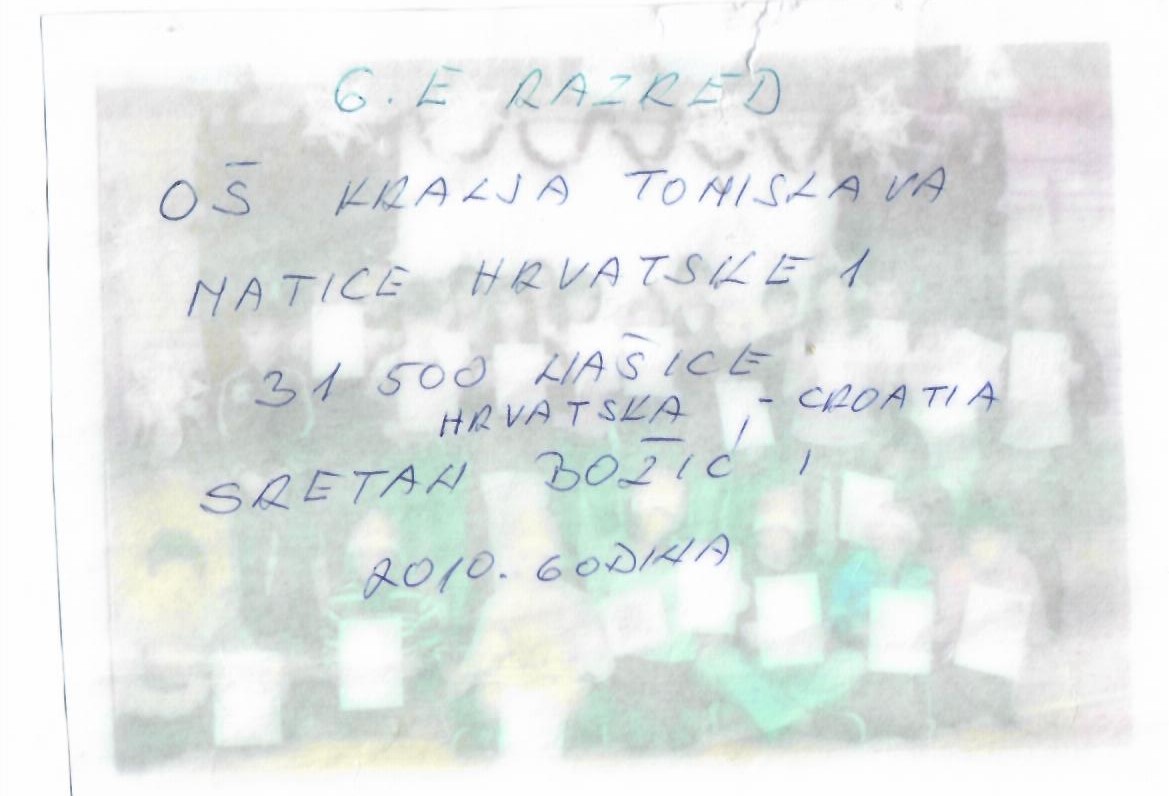 6. E RAZRED
OŠ KRALJA TOMISLAVA
MATICE HRVATSKE 1
31 500 NAŠICE
HRVATSKA - CROATIA
SRETAN BOŽIĆ !
2010. GODINA